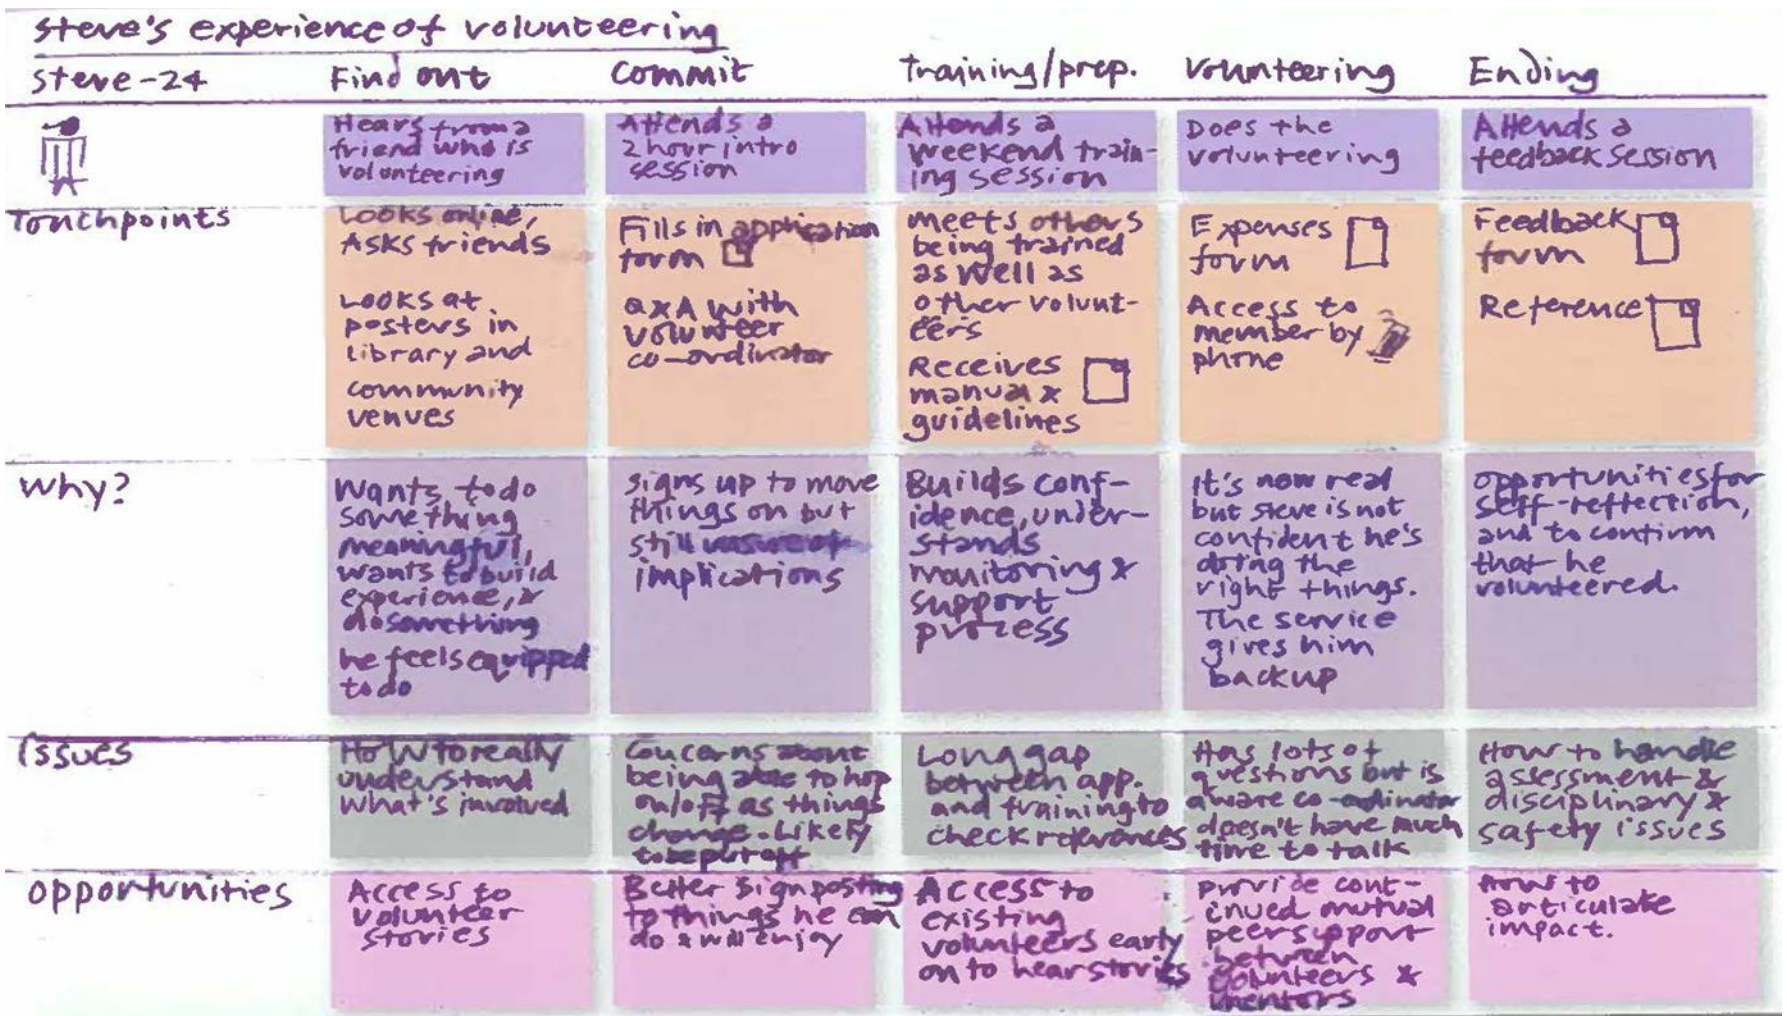 steve's experience of volunteering
steve-24
Find out
Commit
Training/prep.
Volunteering
Ending
Hears from a
friend who is
volunteering
Attends a
2 hour intro
session
Attends a
weekend train-
ing session
Does the
volunteering
Attends a
feedback session
Touchpoints
Looks online,
Asks friends
Looks at
posters in
library and
community
venues
Fills in application
form
Q&A with
volunteer
co-ordinator
meets others
being trained
as well as
other volunt-
eers
Receives
manual &
guidelines
Expenses
form
Access to
member by
phone
Feedback
form
Reference
Why?
Wants to do
something
meaningful,
wants to build
experience, &
do something
he feels equipped
to do
signs up to move
things on but
still unsure of
implications
Builds conf-
idence, under-
stands
monitoring &
support
process
It's now real
but steve is not
confident he's
doing the
right things.
The service
gives him
backup
opportunities for
self-reflection,
and to confirm
that he
volunteered.
Issues
How to really
understand
what's involved
Concerns about
being able to hop
on/off as things
change. Likely
to be put off
Long gap
between app.
and training to
check references
Has lots of
questions but is
aware co-ordinator
doesn't have much
time to talk
How to handle
assessment &
disciplinary &
safety issues
opportunities
Access to
volunteer
stories
Better signposting
to things he can
do & will enjoy
Access to
existing
volunteers early
on to hear stories
provide cont-
inued mutual
peer support
between
volunteers &
mentors
How to
articulate
impact.